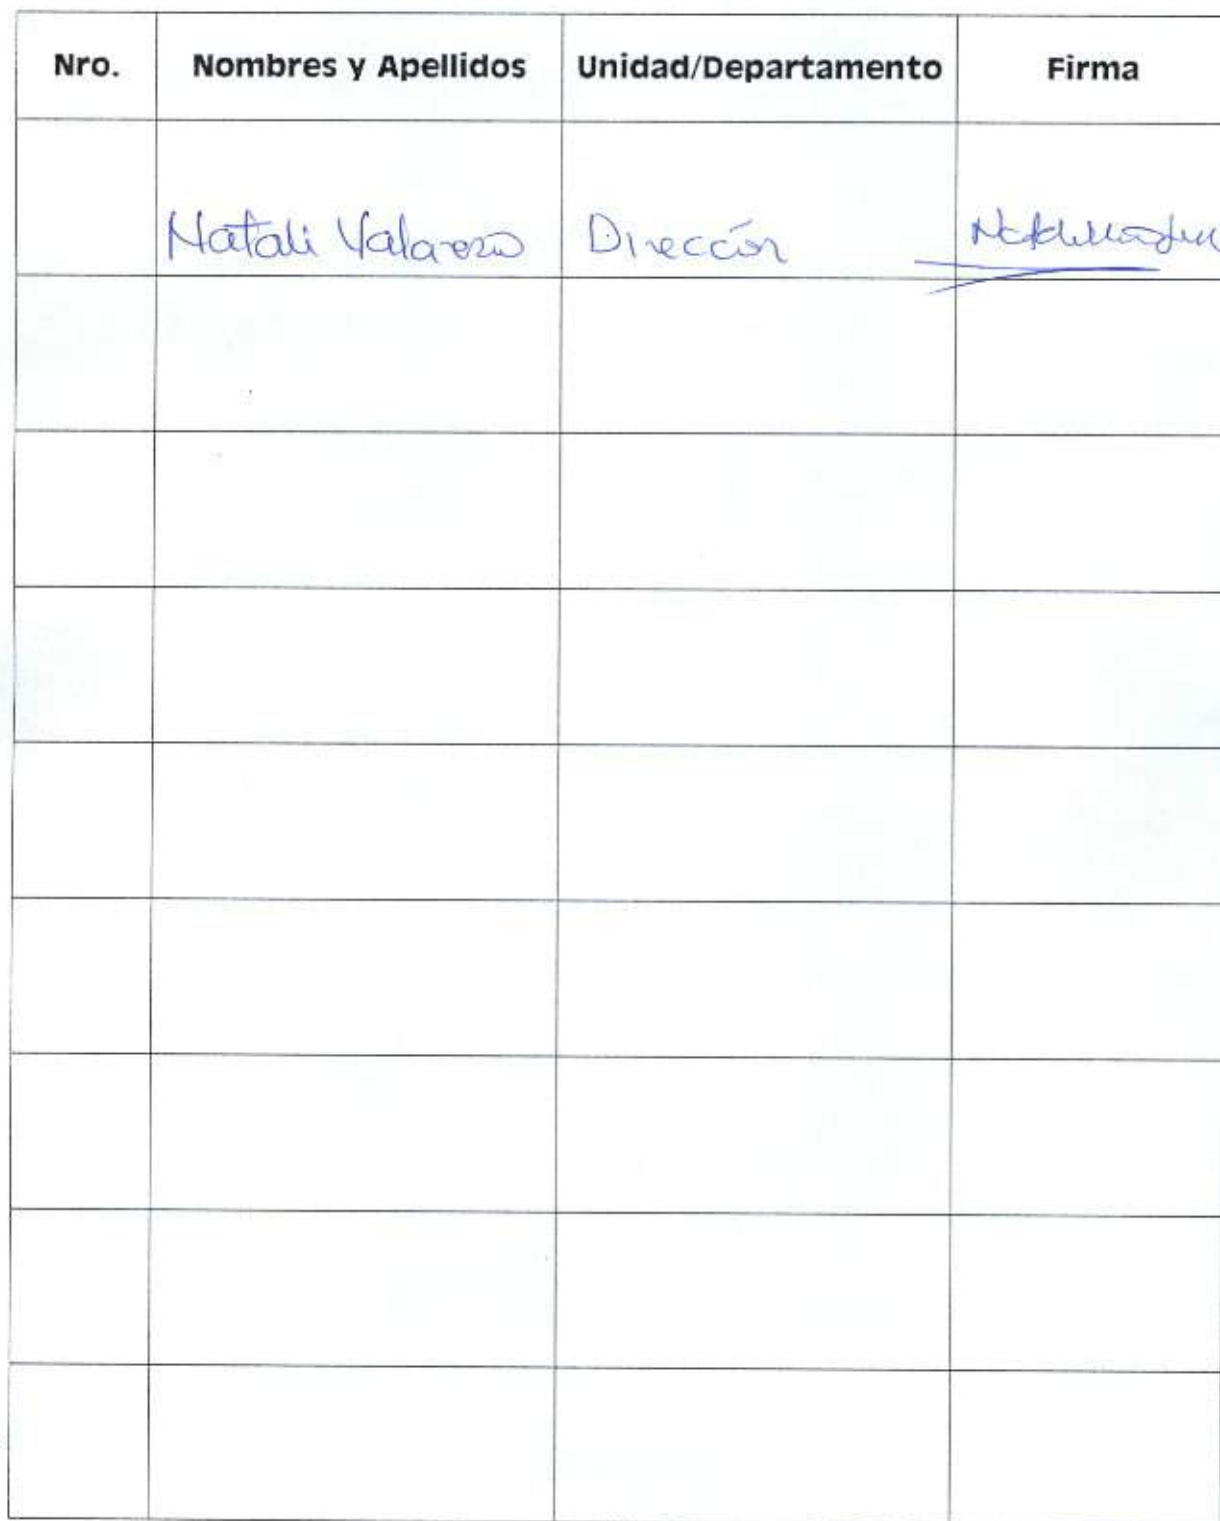 Nro. Nombres y Apellidos Unidad/Departamento Firma
Natali Valarezo Dirección